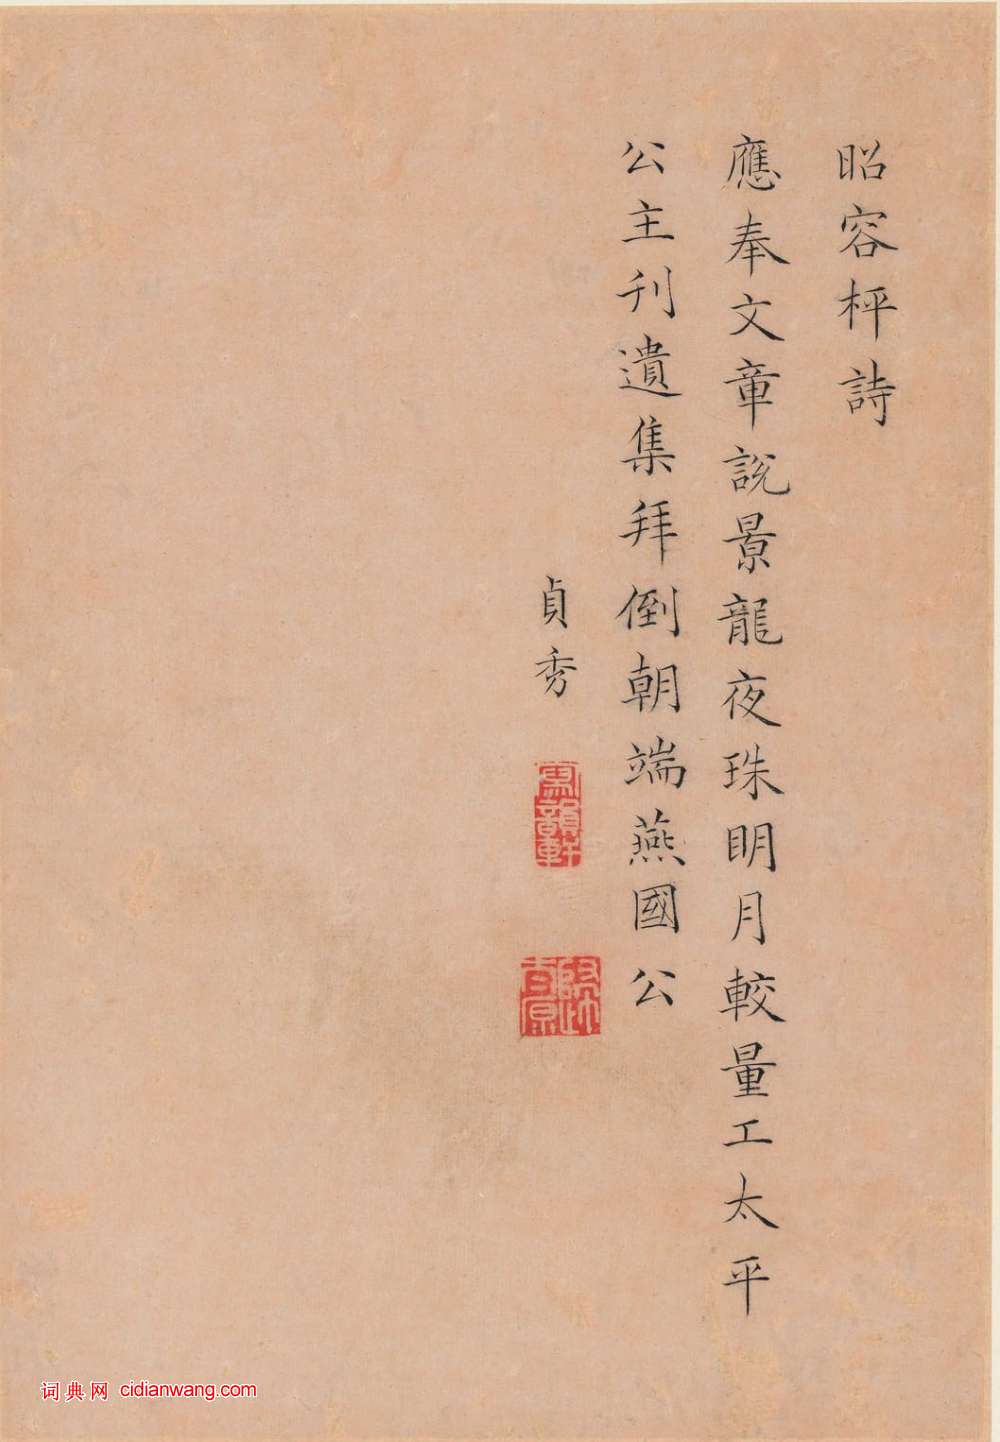 昭容枰詩
應奉文章說景龍夜珠明月較量工太平
公主刋遺集拜倒朝端燕國公
貞秀
寫韻軒
词典网 cidianwang.com